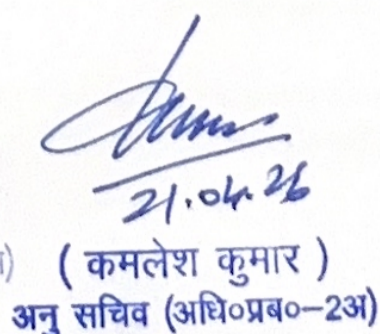 21.04.26
( कमलेश कुमार )
अनु सचिव (अधि०प्रब०–2अ)